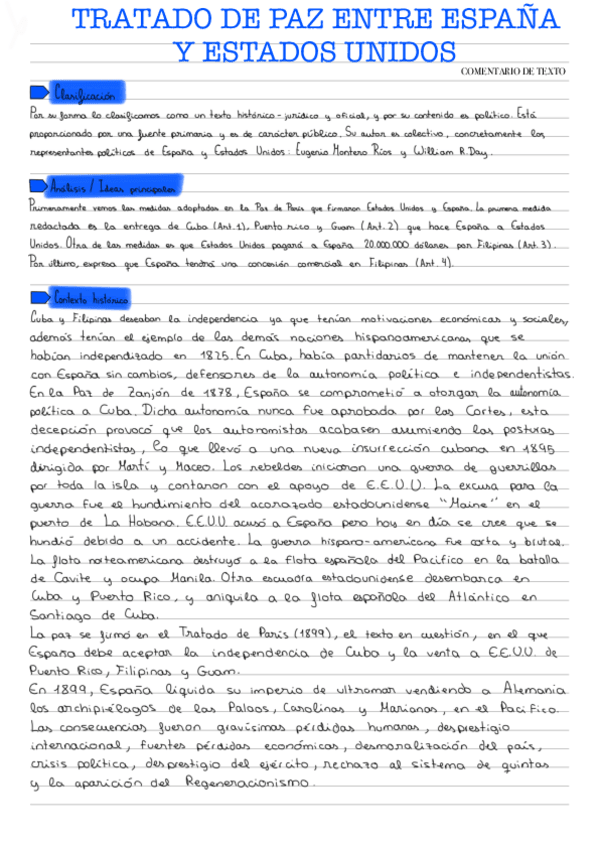 TRATADO DE PAZ ENTRE ESPAÑA
Y ESTADOS UNIDOS
COMENTARIO DE TEXTO
Clasificación
Por su forma lo clasificamos como un texto histórico-jurídico y oficial, y por su contenido es político. Está
proporcionado por una fuente primaria y es de carácter público. Su autor es colectivo, concretamente los
representantes políticos de España y Estados Unidos: Eugenio Montero Ríos y William R.Day.
Análisis / Ideas principales
Primeramente vemos las medidas adoptadas en la Paz de París que firmaron Estados Unidos y España. La primera medida
redactada es la entrega de Cuba (Art.1), Puerto rico y Guam (Art.2) que hace España a Estados
Unidos. Otra de las medidas es que Estados Unidos pagará a España 20.000.000 dólares por Filipinas (Art.3).
Por último, expresa que España tendrá una concesión comercial en Filipinas (Art.4).
Contexto histórico
Cuba y Filipinas deseaban la independencia ya que tenían motivaciones económicas y sociales,
además tenían el ejemplo de las demás naciones hispanoamericanas que se
habían independizado en 1825. En Cuba, había partidarios de mantener la unión
con España sin cambios, defensores de la autonomía política e independentistas.
En la Paz de Zanjón de 1878, España se comprometió a otorgar la autonomía
política a Cuba. Dicha autonomía nunca fue aprobada por las Cortes, esta
decepción provocó que los autonomistas acabasen asumiendo las posturas
independentistas, lo que llevó a una nueva insurrección cubana en 1895
dirigida por Martí y Maceo. Los rebeldes iniciaron una guerra de guerrillas
por toda la isla y contaron con el apoyo de E.E.U.U. La excusa para la
guerra fue el hundimiento del acorazado estadounidense "Maine" en el
puerto de La Habana. E.E.U.U. acusó a España pero hoy en día se cree que se
hundió debido a un accidente. La guerra hispano-americana fue corta y brutal.
La flota norteamericana destruyó a la flota española del Pacífico en la batalla
de Cavite y ocupa Manila. Otra escuadra estadounidense desembarca en
Cuba y Puerto Rico, y aniquila a la flota española del Atlántico en
Santiago de Cuba.
La paz se firmó en el Tratado de París (1899), el texto en cuestión, en el que
España debe aceptar la independencia de Cuba y la venta a E.E.U.U. de
Puerto Rico, Filipinas y Guam.
En 1899, España liquida su imperio de ultramar vendiendo a Alemania
los archipiélagos de las Palaos, Carolinas y Marianas, en el Pacífico.
Las consecuencias fueron gravísimas pérdidas humanas, desprestigio
internacional, fuertes pérdidas económicas, desmoralización del país,
crisis política, desprestigio del ejército, rechazo al sistema de quintas
y la aparición del Regeneracionismo.